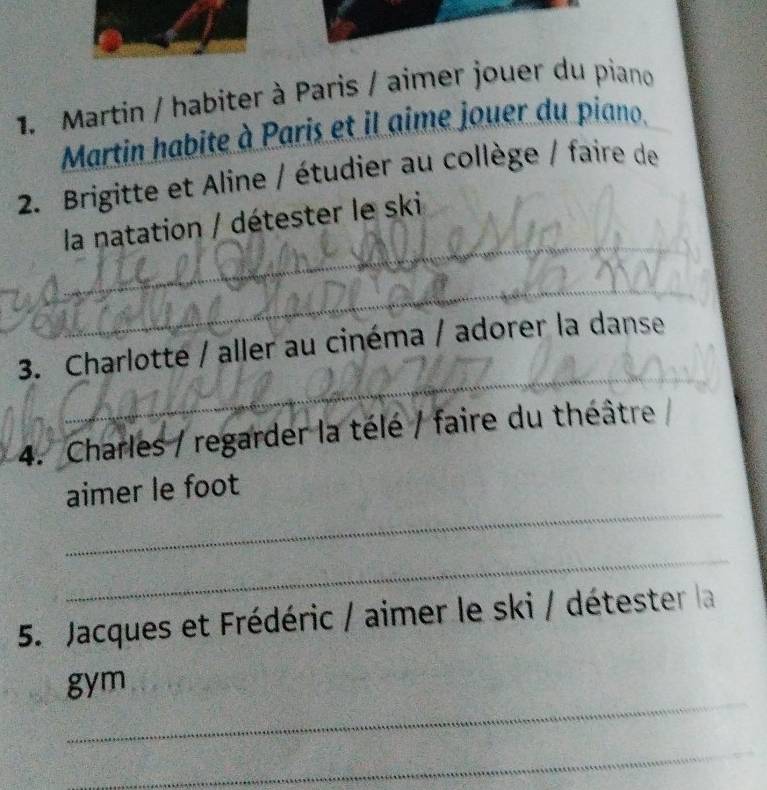 1. Martin / habiter à Paris / aimer jouer du piano
Martin habite à Paris et il aime jouer du piano.
2. Brigitte et Aline / étudier au collège / faire de
la natation / détester le ski
3. Charlotte / aller au cinéma / adorer la danse
4. Charles / regarder la télé / faire du théâtre /
aimer le foot
5. Jacques et Frédéric / aimer le ski / détester la
gym